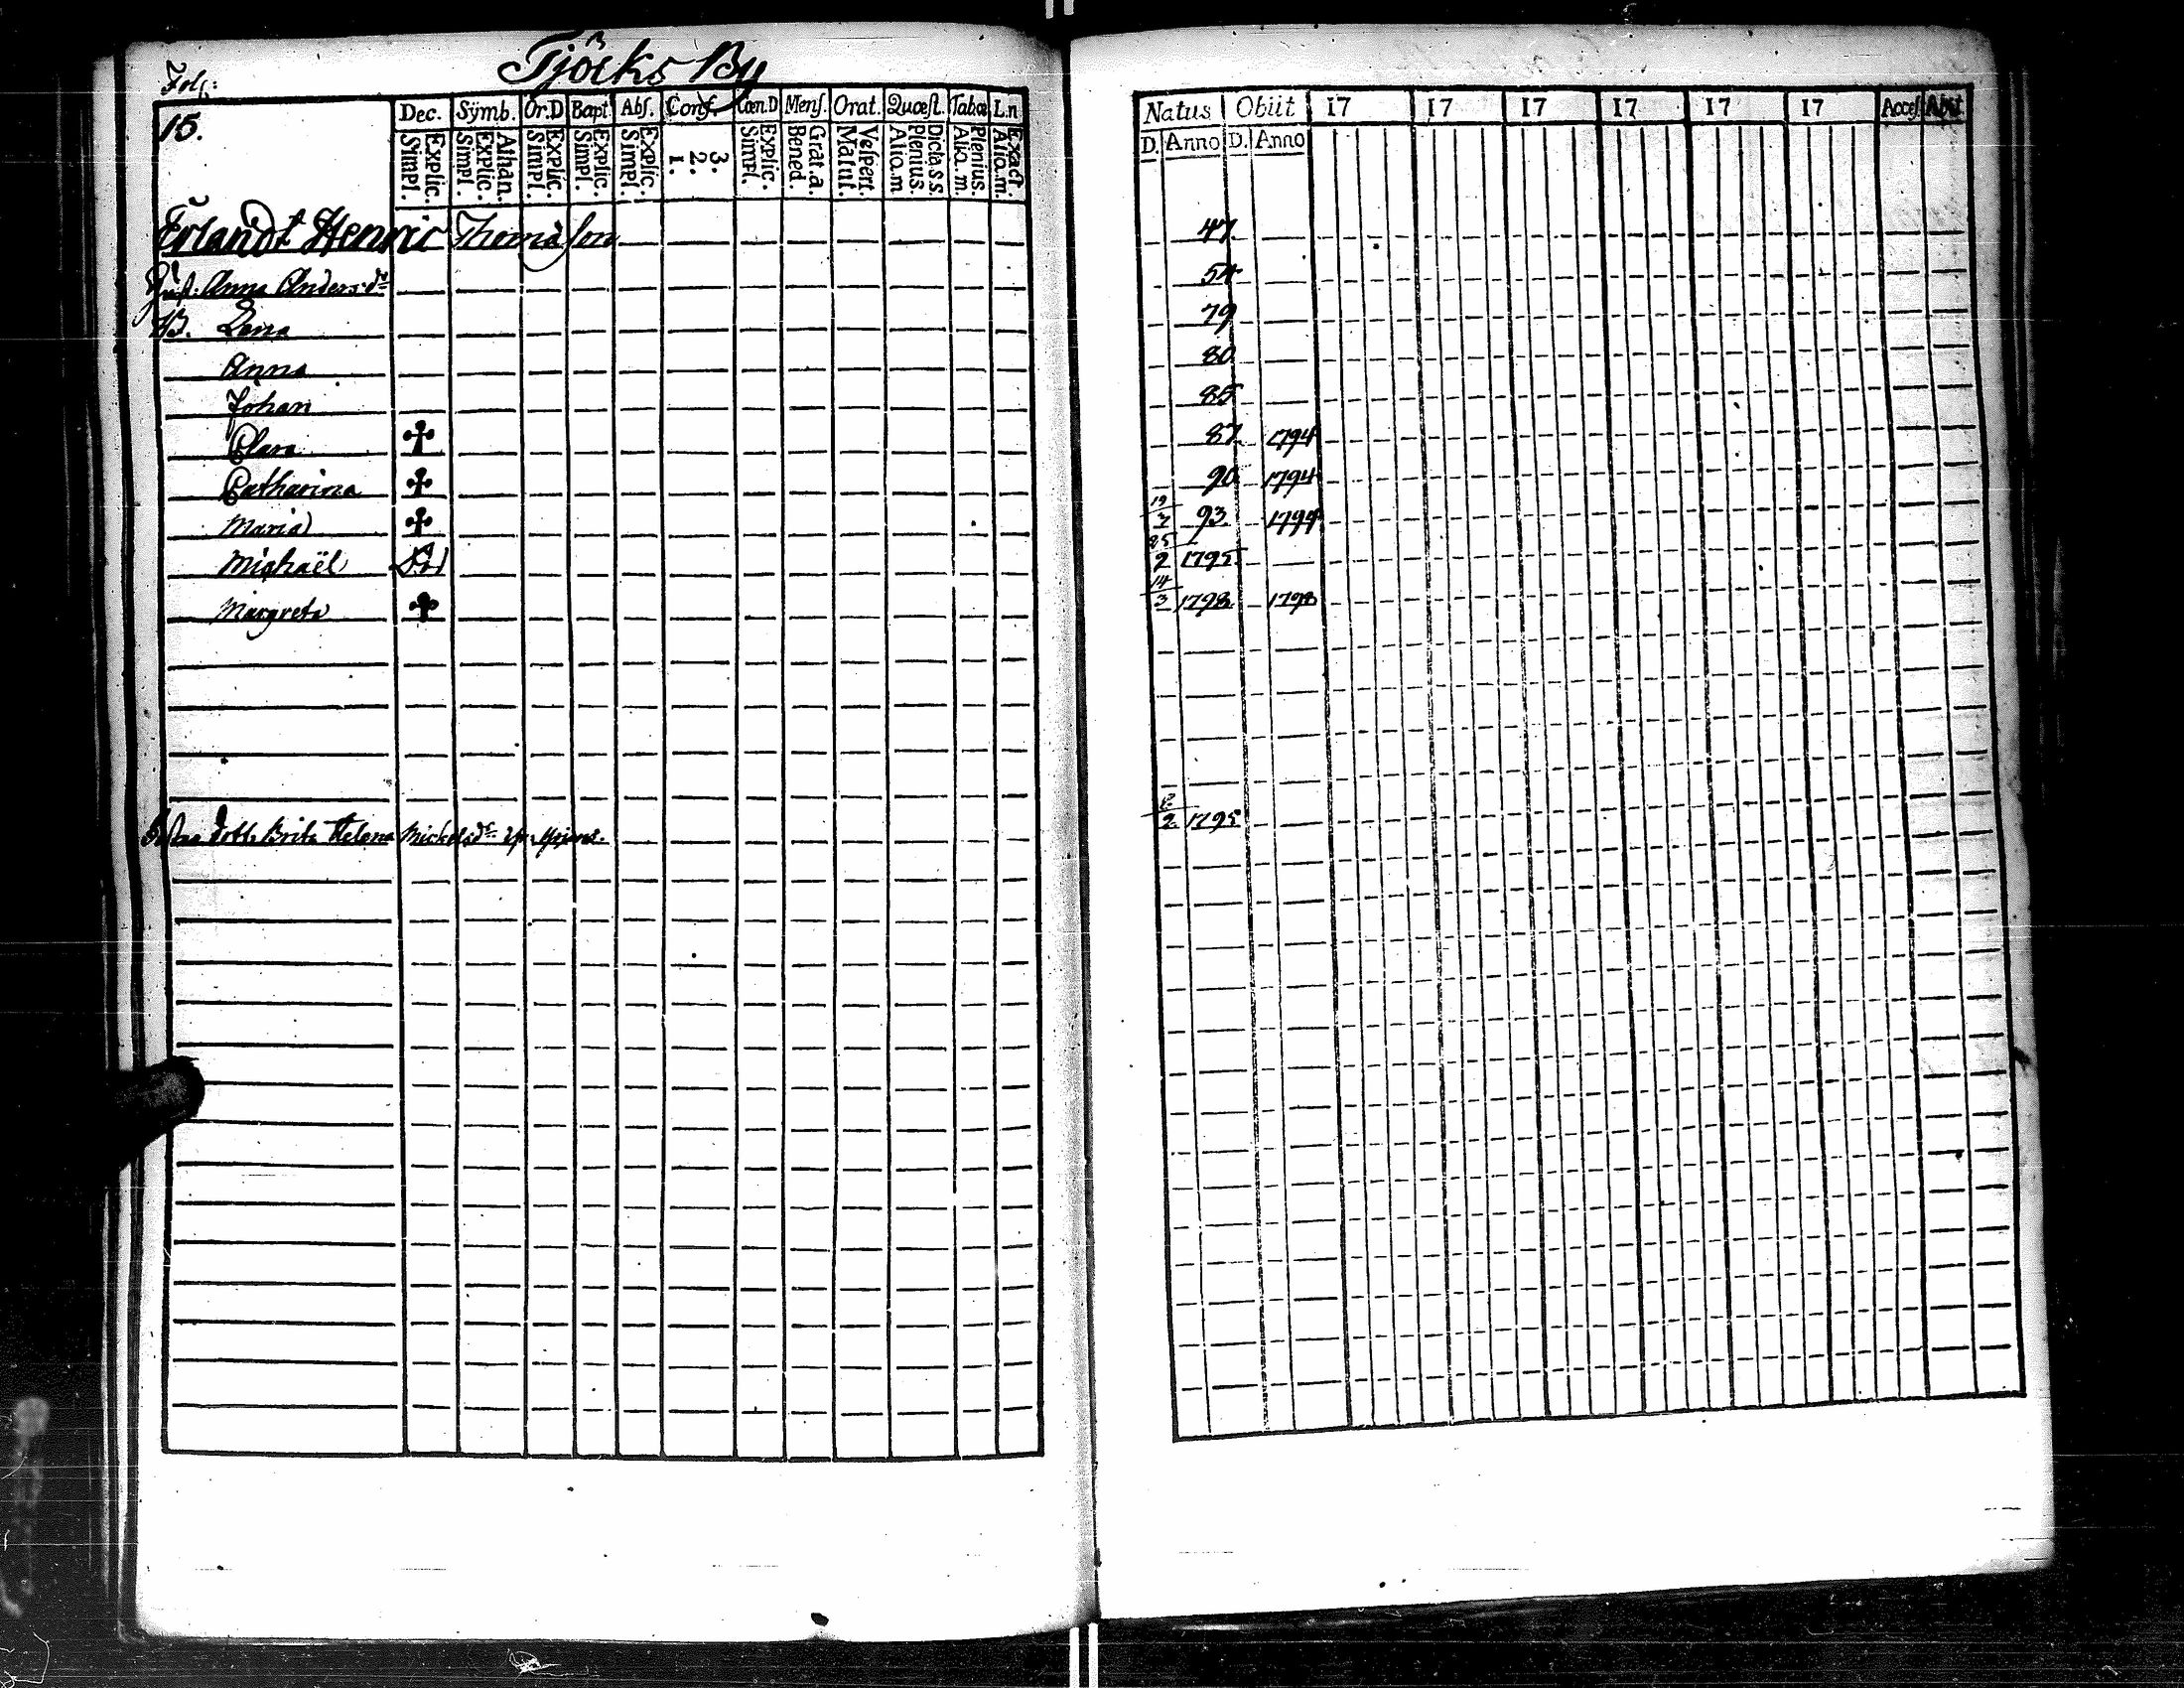 Tjöcks By
Fol:
15.
Dec. Symb. Or.D Bapt. Abſ. Conf. Cœn.D Menſ. Orat. Quœſt. Tabœ L.n
Explic. Simpl. Athan. Explic. Simpl. Explic. Simpl. Explic. Simpl. Explic. Simpl. 3. 2. 1. Explic. Simpl. Grat.a. Bened. Veſpert. Matut. Dicta.s.s. Plenius. Alio.m. Plenius. Alia.m. Exact. Alio.m.
Erlandt Henric Thomaſson
Huſt. Anna Anders.dr
B. Lena
Anna
Johan
Clara
Catharina
Maria
Michaël
Margreta
dott. Brita Helena Mickelsdr
Natus Obiit 17 17 17 17 17 17 Acceſ. Abſt.
D. Anno D. Anno
47
54
79
80
85
87 1794
90 1794
19/3 93 1794
25/2 1795
14/3 1798 1798
2 1795